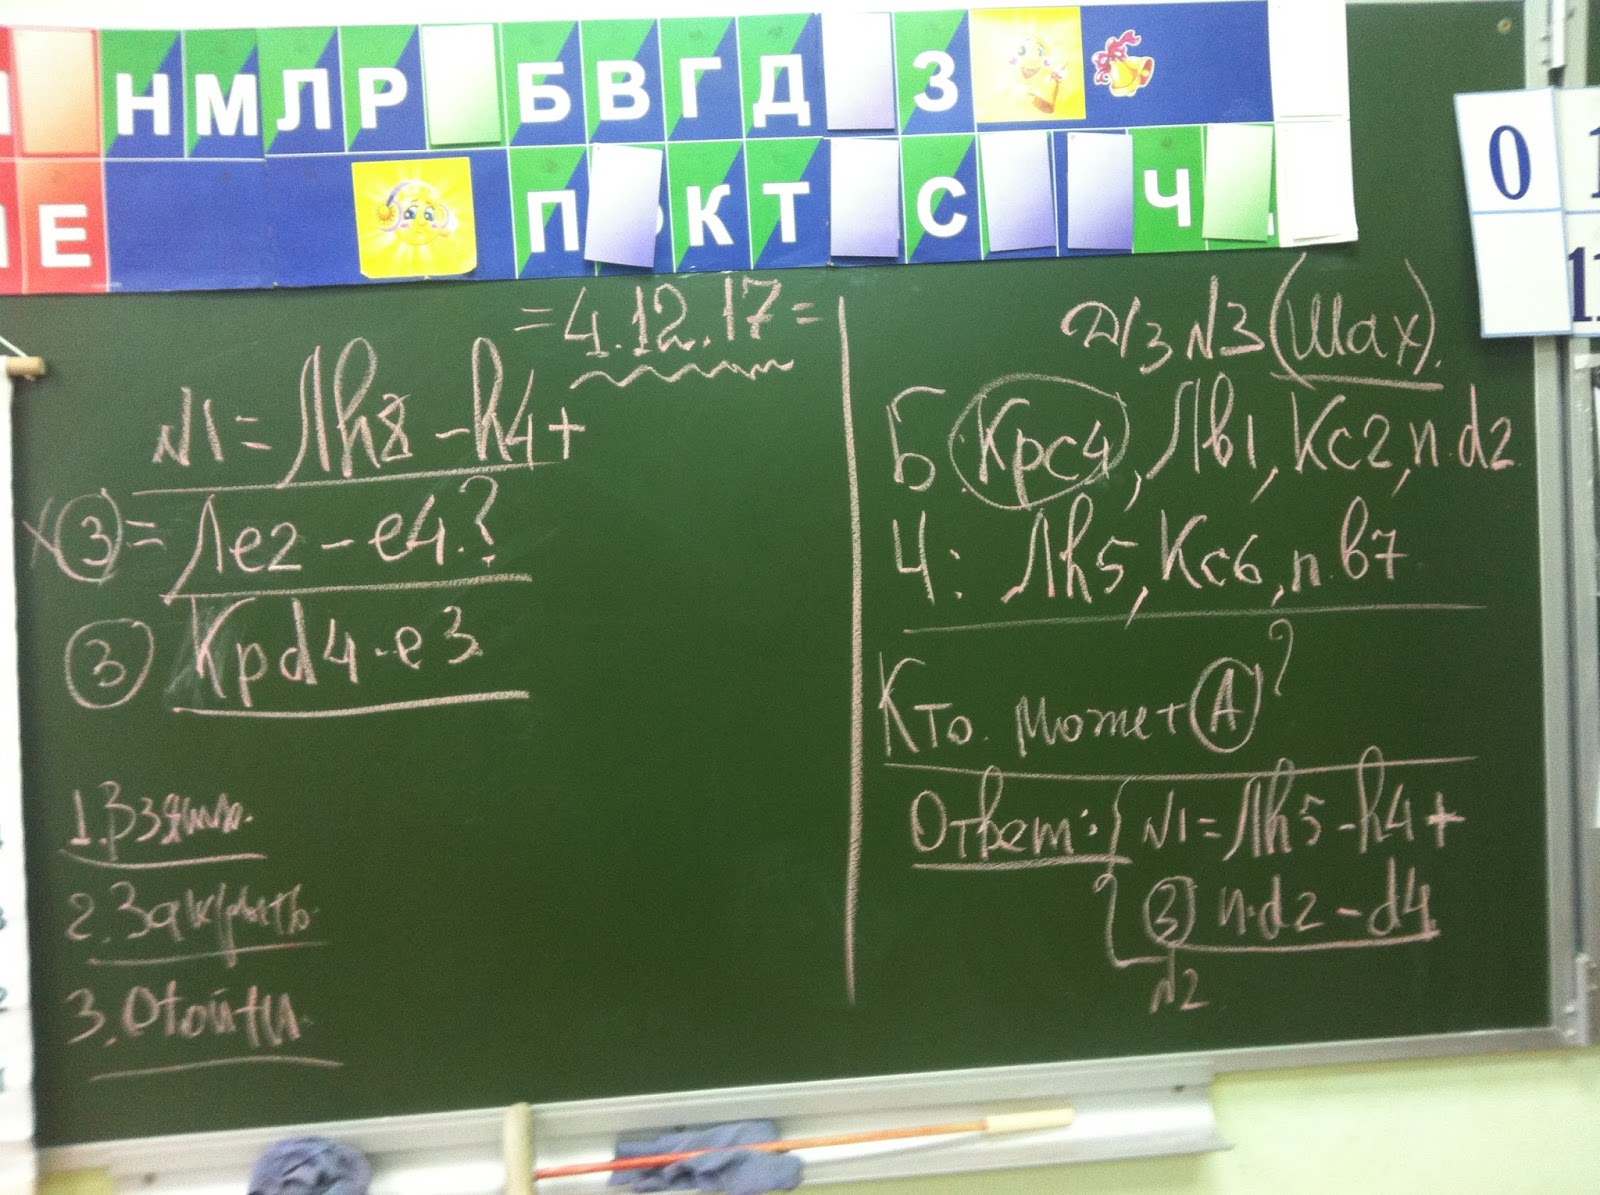 Н М Л Р Б В Г Д З
Е П К Т С Ч
0 1
11
=4.12.17=
N1=Лh8-h4+
х(3)=Ле2-е4?
(3) Крd4-е3
1.Взять.
2.Закрыть.
3.Отойти.
Д/З N3 (Шах).
Б: Крс4, Лв1, Кс2, п.d2
Ч: Лh5, Кс6, п.в7
Кто может (А)?
Ответ: { N1=Лh5-h4+
(3) п.d2-d4
N2